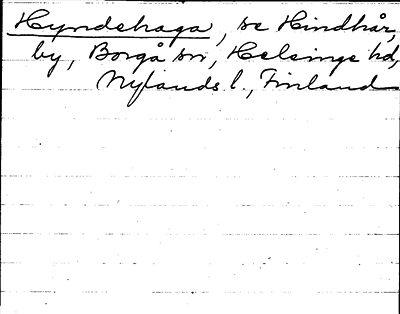 Hyndehaga, se Hindhår,
by, Borgå sn, Helsinge hd,
Nylands l., Finland